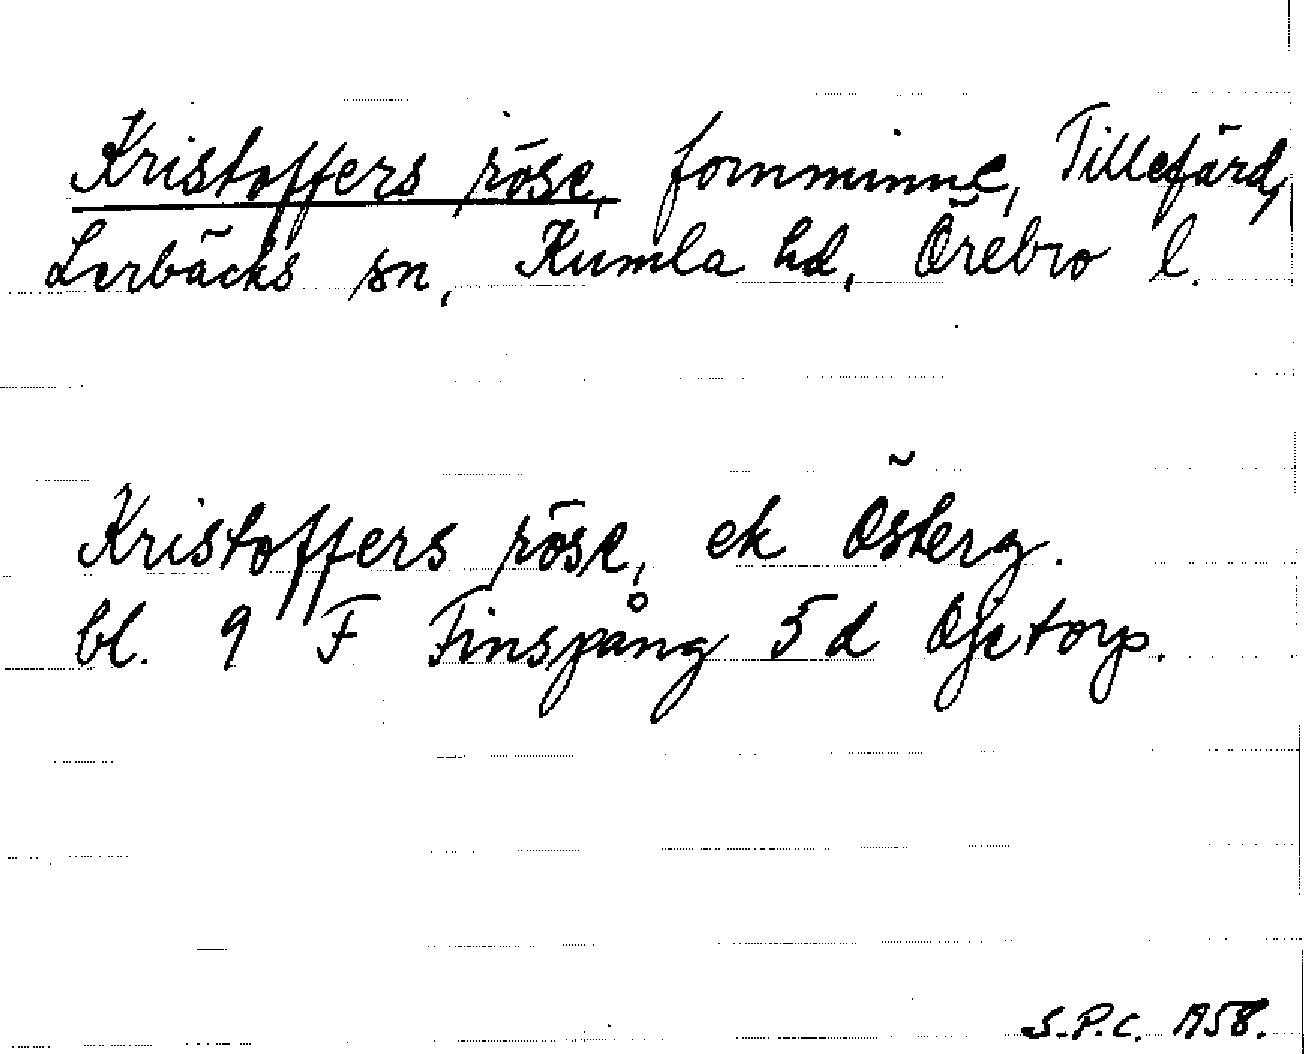 Kristoffers röse, fornminne, Tillefärd,
Lerbäcks sn, Kumla hd, Örebro l.
Kristoffers röse, ek Östberg.
bl. 9 F Finspång 5 d Ojetorp.
S.P.C. 1958.